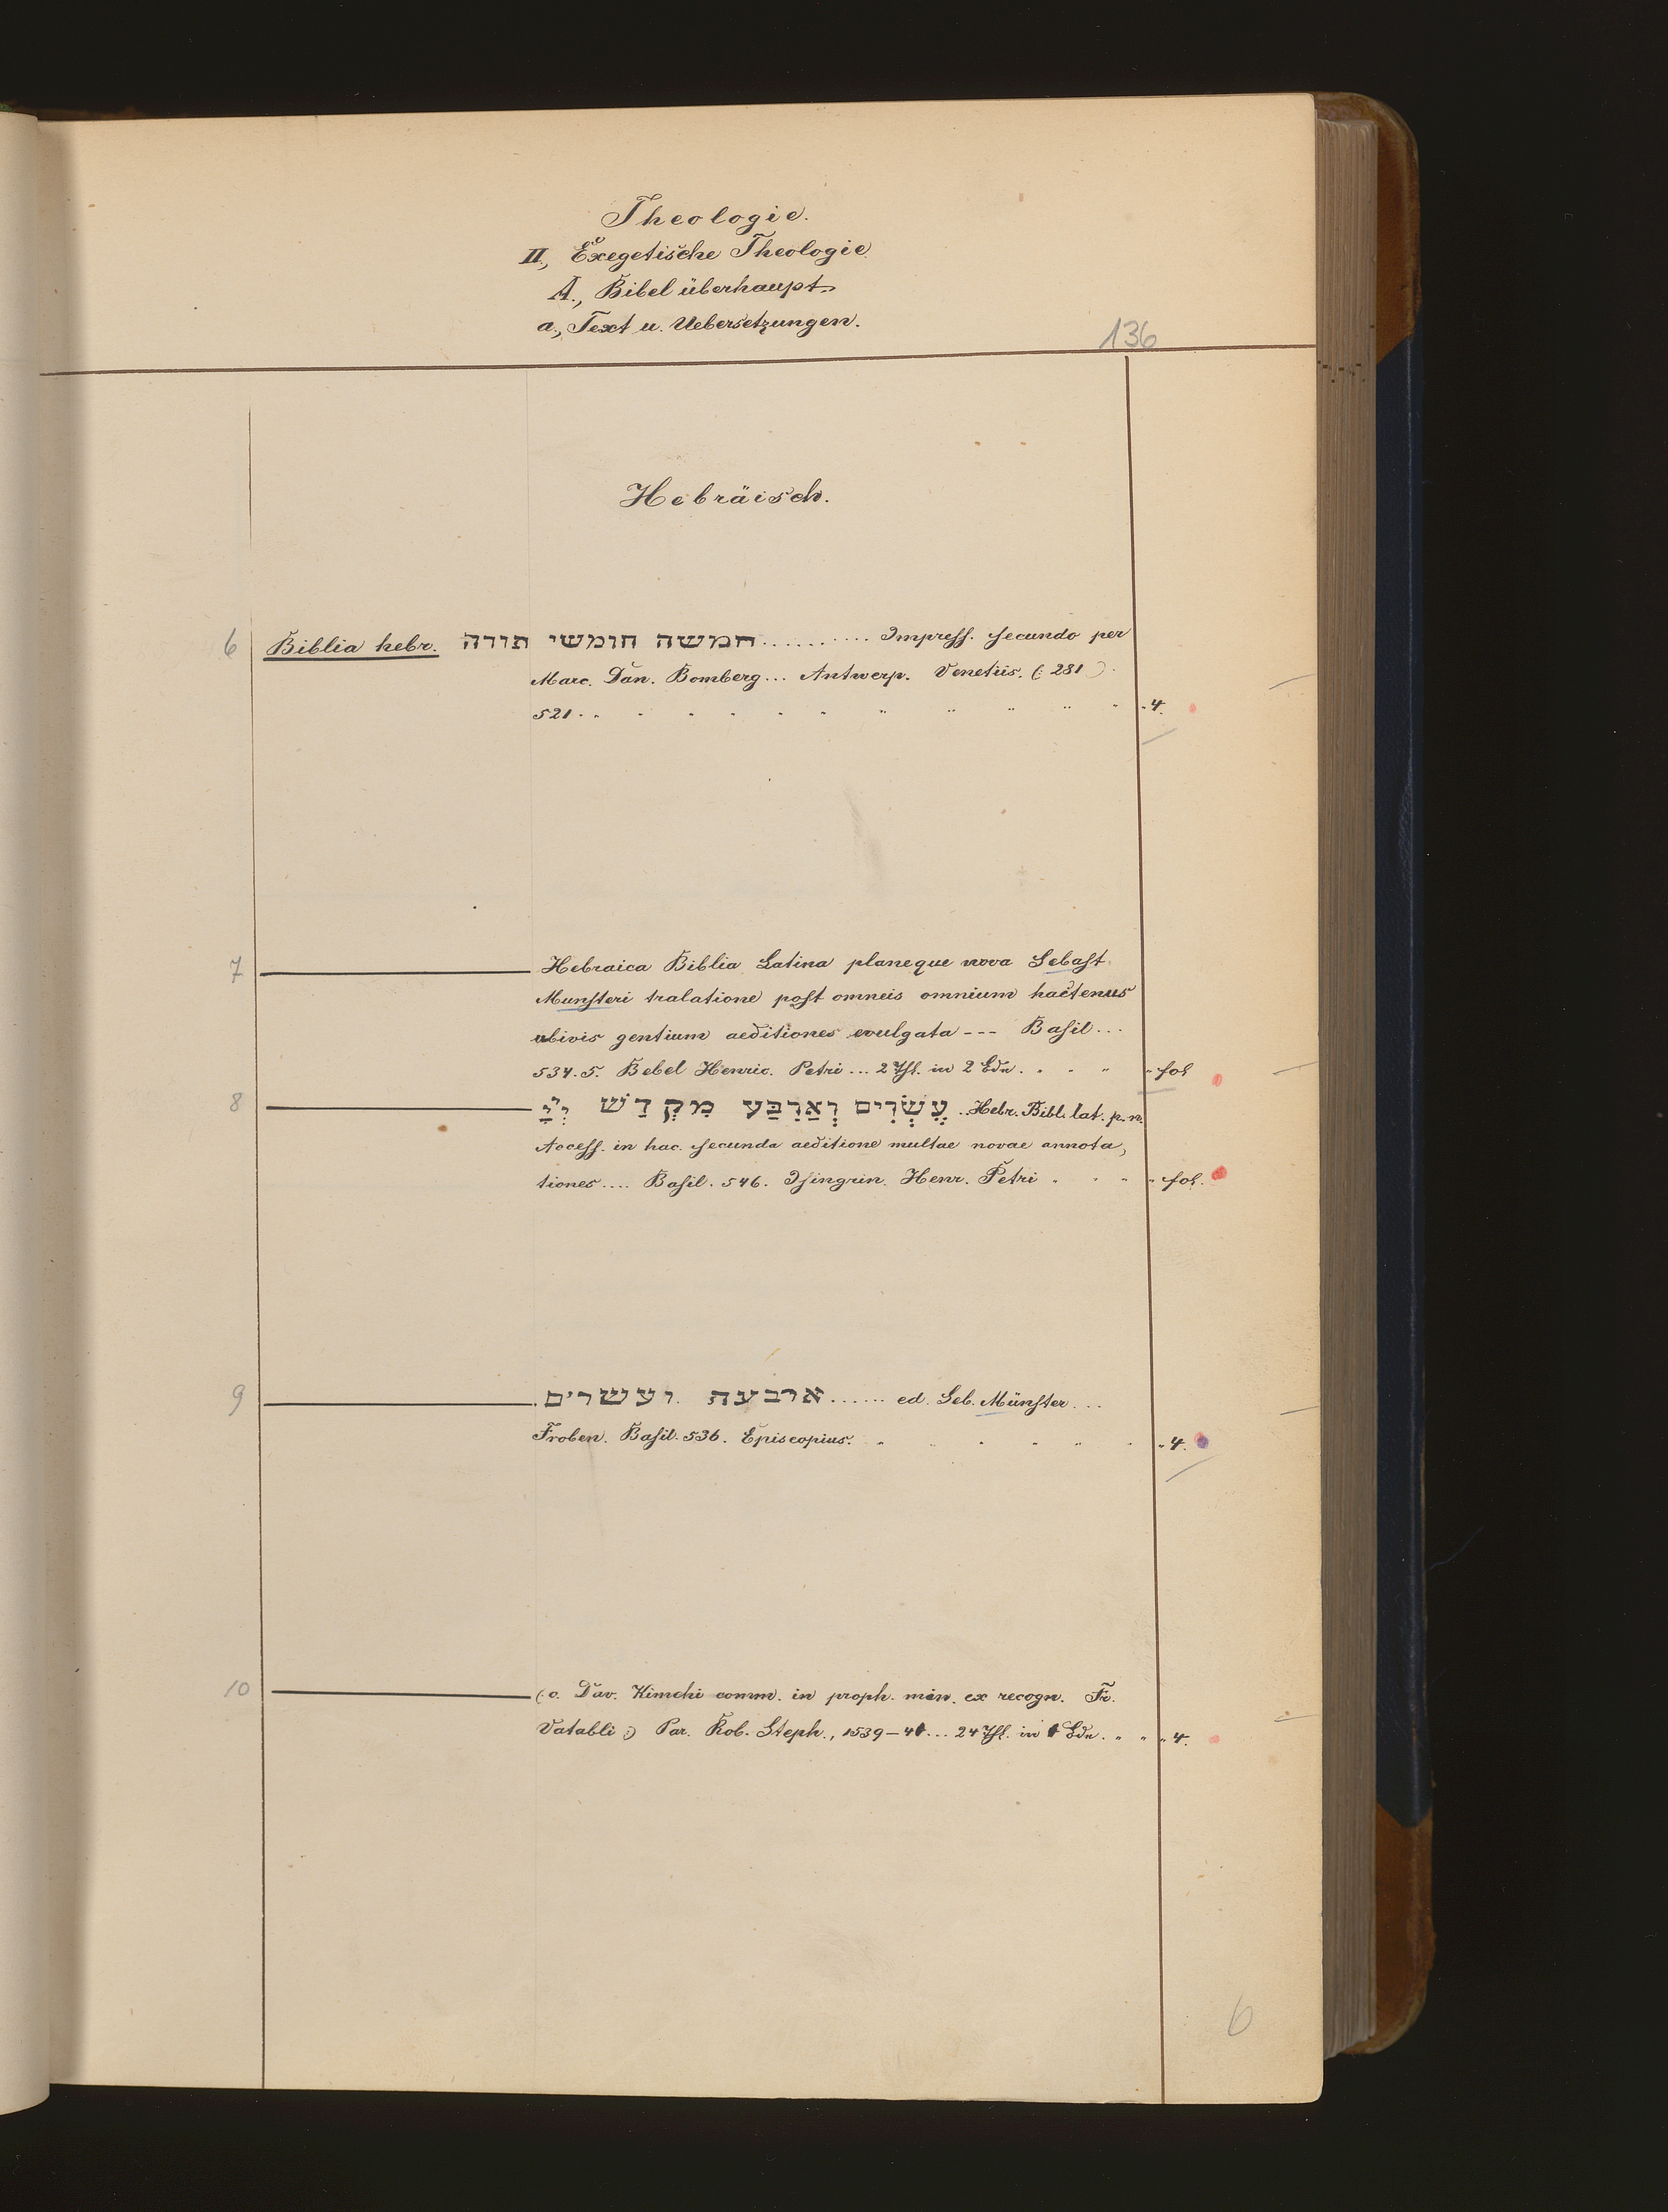 Theologie.
II., Exegetische Theologie
A., Bibel überhaupt.
a., Text u. Uebersetzungen.
136
Hebräisch.
6 Biblia hebr. חמשה חומשי תורה .......... Impress. secundo per
Marc. Dan. Bomberg... Antwerp. Venetiis. (: 281 :)
521 . . . . . . . . . . . 4.
7 Hebraica Biblia Latina planeque nova Sebast.
Munsteri tralatione post omneis omnium hactenus
ubivis gentium aeditiones evulgata --- Basil...
534.5. Bebel Henric. Petri ... 2 Thl. in 2 Bdn. . . . . fol
8 עֶשְׂרִים וְאַרְבַּע מִקְדַשׁ יְיָ .. Hebr. Bibl. lat. p. n.
Access. in hac. secunda aeditione multae novae annota,
tiones .... Basil. 546. Isingrin. Henr. Petri . . . . fol.
9 ארבעה ועשרים ...... ed. Seb. Münster ...
Froben. Basil. 536. Episcopius. . . . . . . . 4.
10 (: c. Dav. Kimchi comm. in proph. min. ex recogn. Fr.
Vatabli :) Par. Rob. Steph., 1539- ... 24 Thl. in Bdn. . . . 4.
6